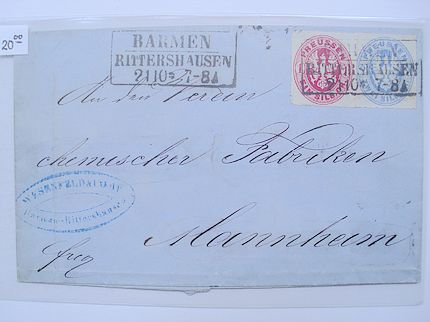 20
BARMEN
RITTERSHAUSEN
21 10 * 7-8A
PREUSSEN
SILB
PREUSSEN
SILB
RITTERSHAUSEN
10 * 7-8A
An den Verein
chemischer Fabriken
Mannheim
WESENFELD & CO
Barmen-Rittershausen